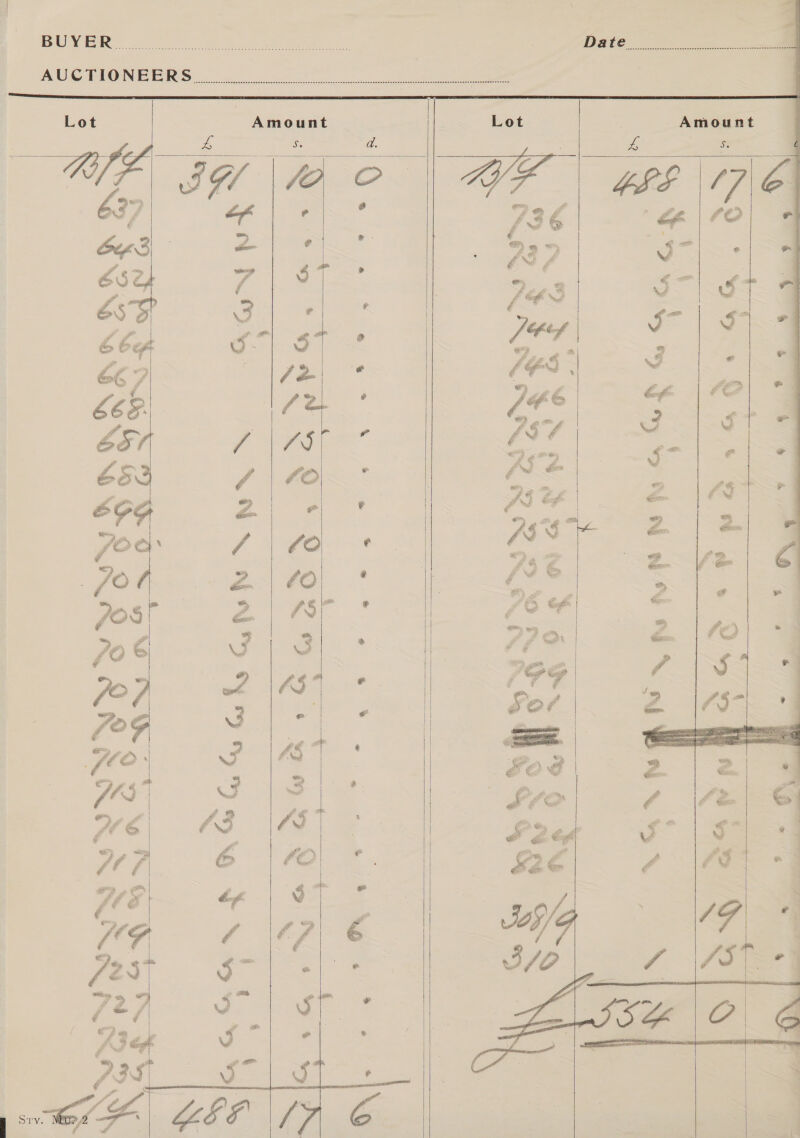 BUYER Date
AUCTIONEERS
Lot Amount
£ s. d.
B/F 391 10 0
637 4 " "
643 2 " "
654 7 5 "
658 3 " "
664 5 5 "
667 12 "
668 12 "
681 1 15 "
683 1 10 "
699 2 " "
700 1 10 "
701 2 10 "
705 2 15 "
706 3 3 "
707 2 15 "
709 3 " "
710 3 15 "
715 3 3 "
716 13 15 "
717 6 10 "
718 4 5 "
719 1 17 6
725 5 " "
727 5 5 "
734 5 " "
735 5 5 "
C/F. 488 17 6
Lot Amount
£ s.
B/F 488 17 6
736 4 10 "
737 5 " "
743 5 5 "
744 5 5 "
745 3 " "
746 4 10 "
751 3 5 "
752 5 " "
754 2 15 "
755 2 2 "
756 2 12 6
764 2 " "
770 2 10 "
799 1 5 "
801 2 15 "
803 2 2 "
810 1 12 6
824 5 5 "
826 1 15 "
308/9 19 "
310 1 15 "
£ 554 0 6
STY.